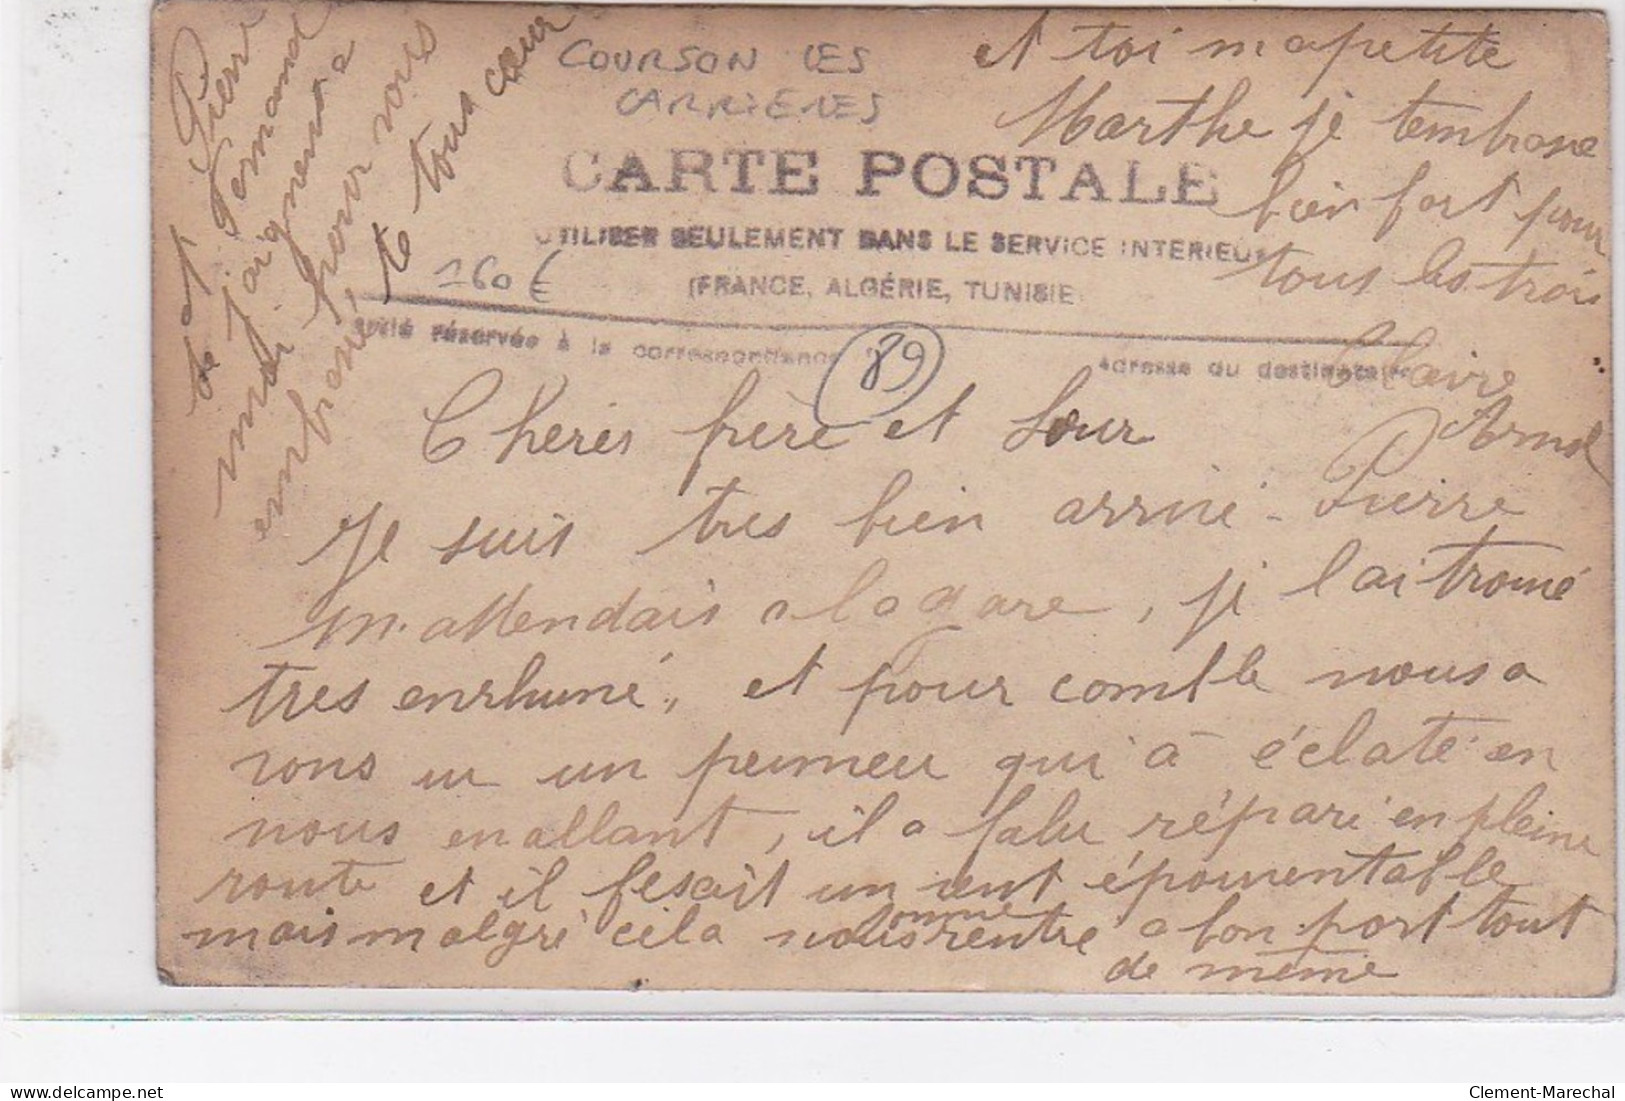 COURSON LES
CARRIERES
CARTE POSTALE
UTILISER SEULEMENT DANS LE SERVICE INTERIEUR
(FRANCE, ALGÉRIE, TUNISIE
160 €
réservée à la correspondance
adresse du destinataire
89
Chéres frère et Sœur
Je suis tres bien arrivé - Pierre
m'attendais a la gare, je l'ai trouvé
tres enrhumé, et pour comble nous a
vons eu un peumeu qui à éclaté en
nous en allant, il a falu réparé en pleine
route et il fesait un vent épouventable
mais malgré cela nous somme rentre a bon port tout
de même
Pierre
et Fernand
se joignent a
moi pour vous
embrasse, te tous cœur
et toi ma petite
Marthe je tembrasse
bien fort pour
tous les trois
Claire
Clement-Marechal